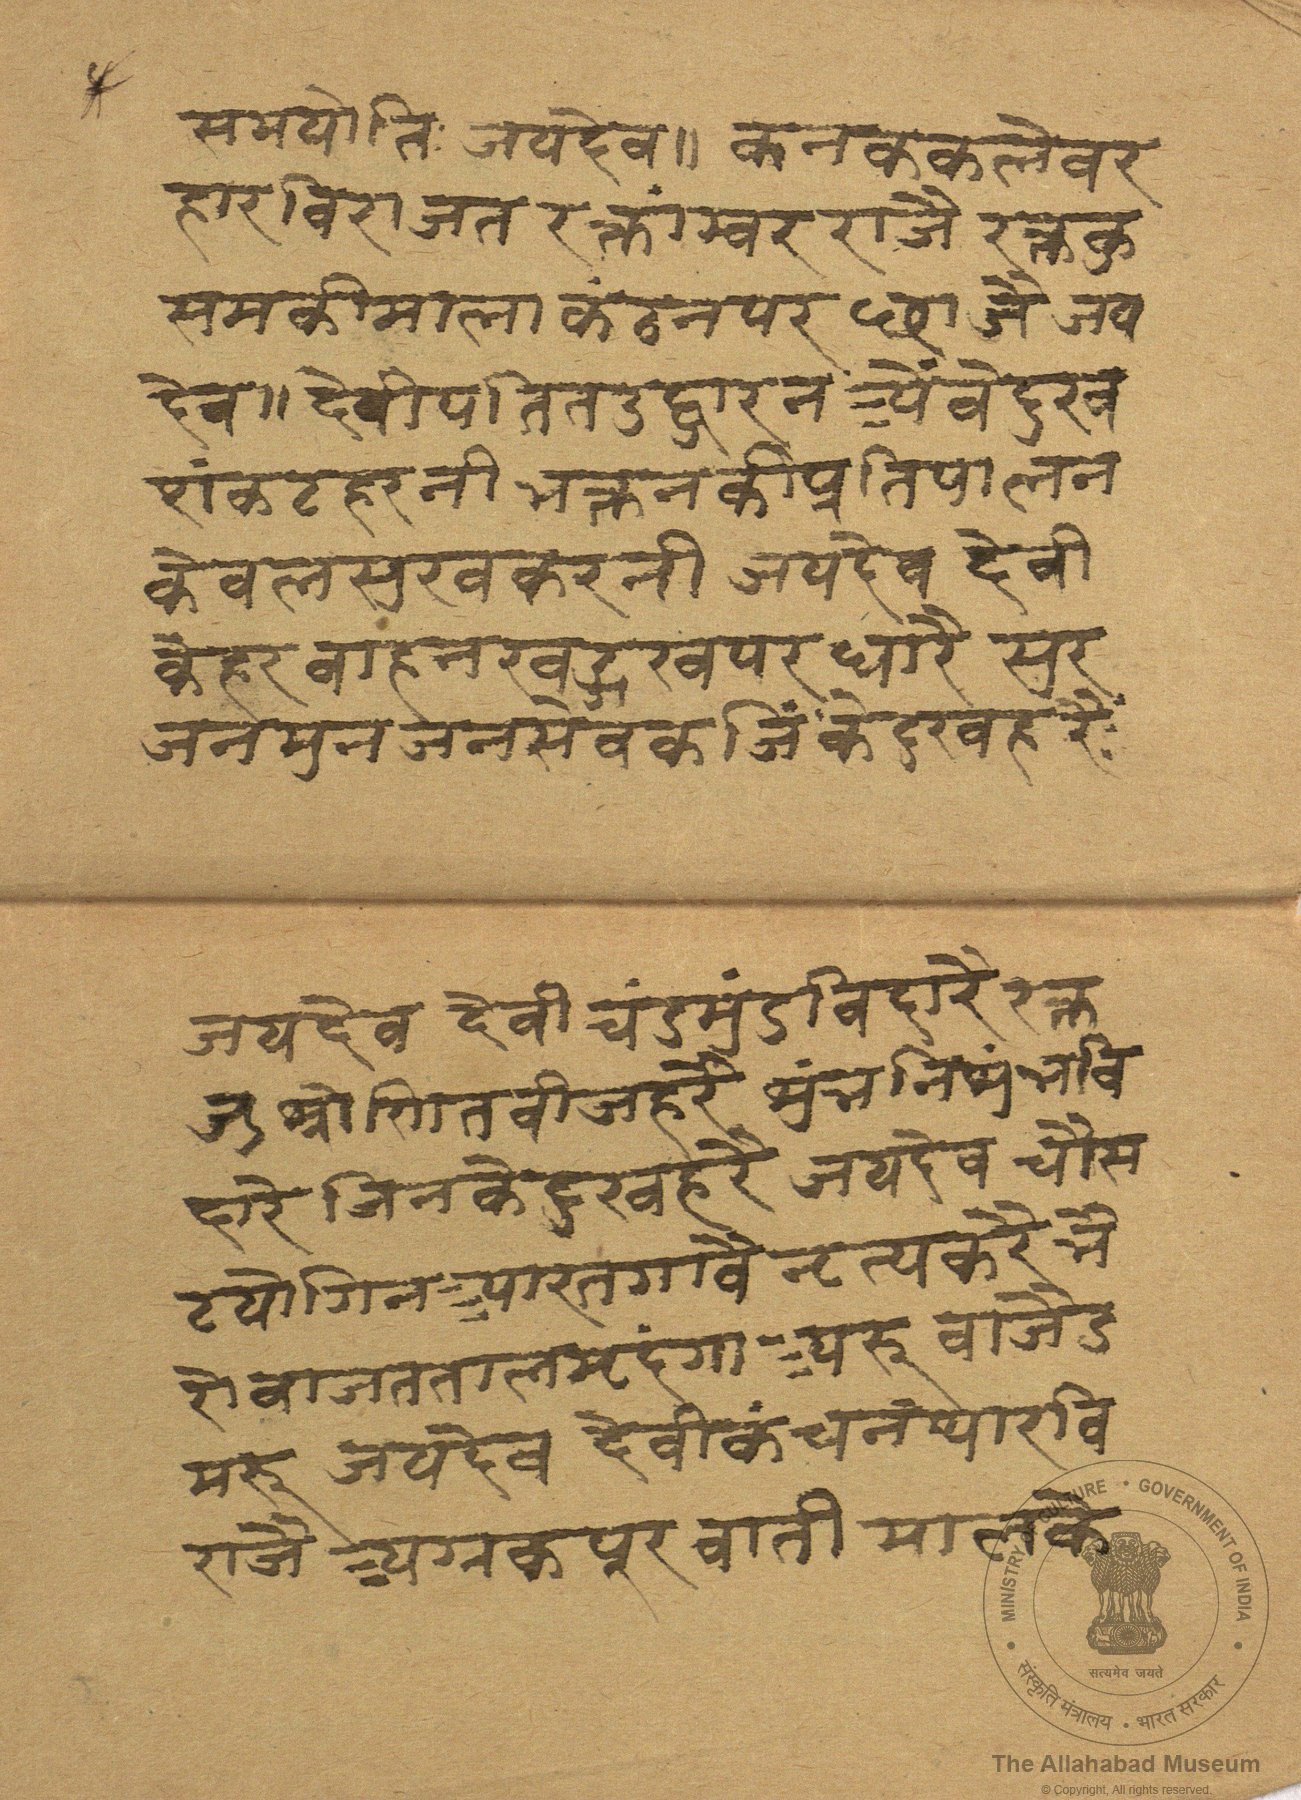 समयोति जयदेव॥ कनककलेवर
हारविराजत रक्तांम्वर राजै रक्तकु
समकीमाला कंठनपर छाजै जय
देव॥ देवीपतितउद्धारन अैंवेदुख
शंकटहरनी भक्तनकीप्रतिपालन
केवलसुखकरनी जयदेव देवी
केहरवाहनखड्गखपरधारै सुर
जनमुनजनसेवक जिंकेदुखहरैं
जयदेव देवी चंडमुंडविदारै रक्त
श्रोणितवीजहरै शुंभनिशुंभवि
दारे जिनकेदुखहरै जयदेव चौस
टयोगिन आरतगावै नृत्यकरै भै
रोवाजततालमृदंगा अरू वाजैड
मरू जयदेव देवीकंचनथारवि
राजै अग्रकपूरवाती मालकै
MINISTRY OF CULTURE • GOVERNMENT OF INDIA
सत्यमेव जयते
संस्कृति मंत्रालय • भारत सरकार
The Allahabad Museum
© Copyright, All rights reserved.